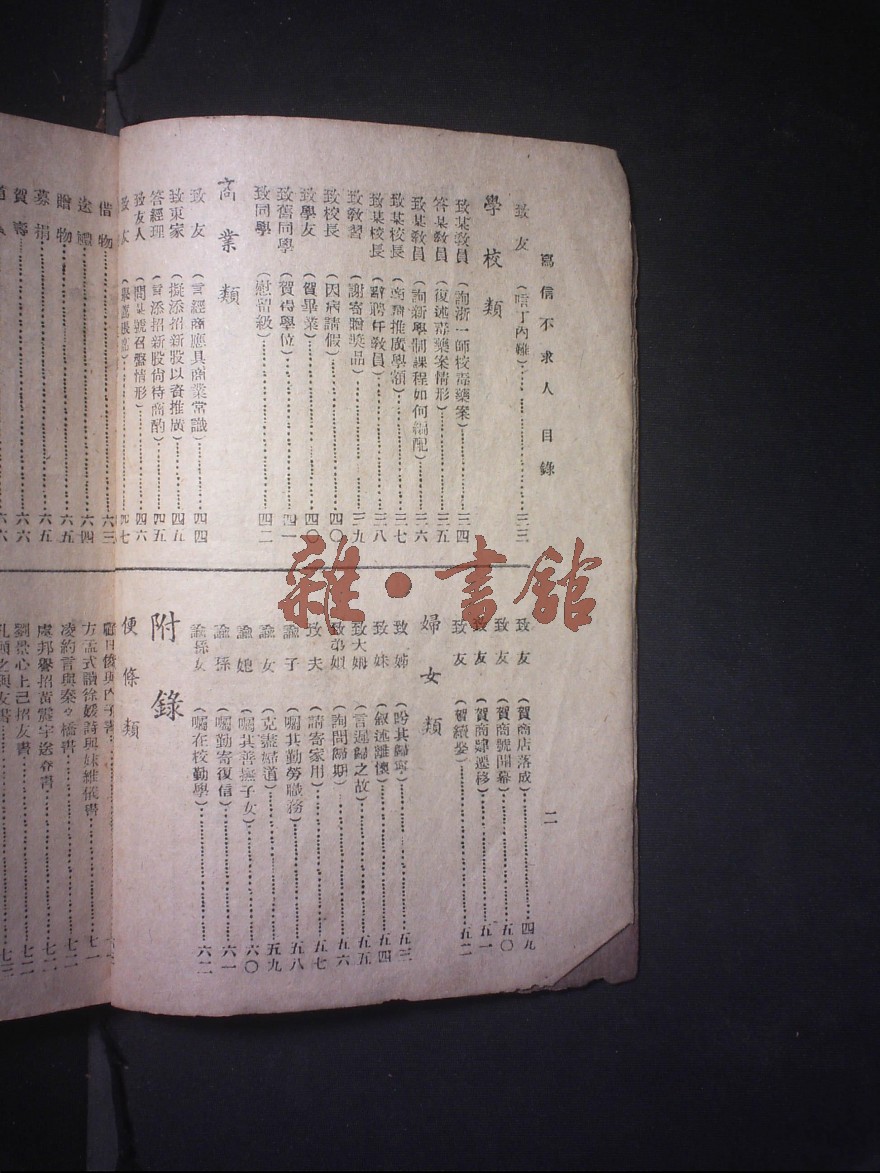 寫信不求人 目錄 二
致友(唁丁內艱)……三三
學校類
致某敎員(詢浙一師校毒藥案)……三四
答某敎員(復述毒藥案情形)……三五
致某敎員(詢新學制課程如何編配)……三六
致某校長(商酌推廣學額)……三七
致某校長(辭聘任敎員)……三八
致敎習(謝寄贈獎品)……三九
致校長(因病請假)……四〇
致學友(賀畢業)……四〇
致舊同學(賀得學位)……四一
致同學(慰留級)……四二
商業類
致友(言經商應具商業常識)……四四
致東家(擬添招新股以資推廣)……四五
答經理(言添招新股尙待商酌)……四五
致友人(問某號召盤情形)……四六
致友……四七
致友(賀商店落成)……四九
致友(賀商號開幕)……五〇
致友(賀商肆遷移)……五一
致友(賀續娶)……五二
婦女類
致姊(盼其歸寧)……五三
致妹(叙述離懷)……五四
致大姆(言遲歸之故)……五五
致弟姒(詢問歸期)……五六
致夫(請寄家用)……五七
諭子(囑其勤勞職務)……五八
諭女(克盡婦道)……五九
諭媳(囑其善撫子女)……六〇
諭孫(囑勤寄復信)……六一
諭孫女(囑在校勤學)……六二
附錄
便條類
借物……六三
送禮……六四
贈物……六五
募捐……六五
賀壽……六六
……六六
與內子書
方孟式讀徐媛詩與妹維儀書……七一
凌約言與秦 橋書……七二
虞邦譽招黃震宇送春書……七二
劉景心上己招友書……七二
與友書……七三
雜·書館